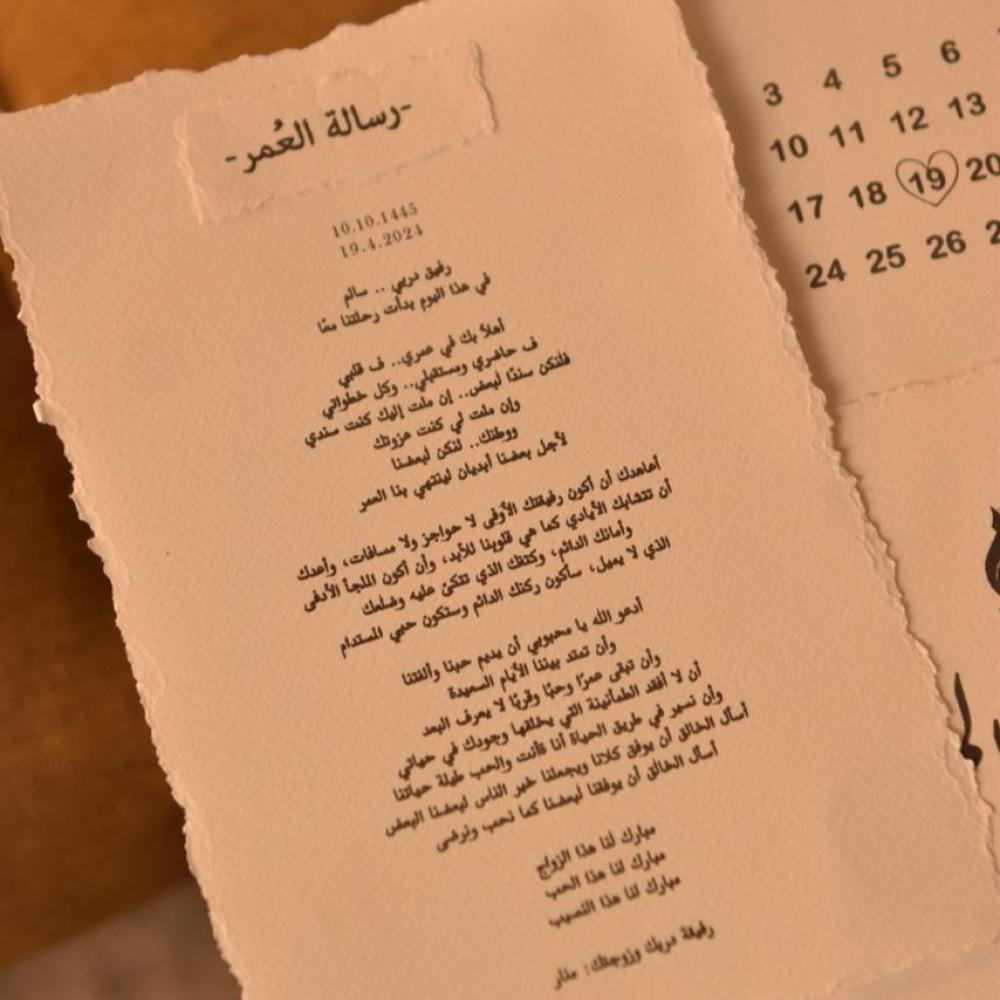 -رسالة العُمر-
10.10.1445
19.4.2024
رفيق دربي .. سالم
في هذا اليوم بدأت رحلتنا معًا
أهلاً بك في عمري.. ف قلبي
ف حاضري ومستقبلي.. وكل خطواتي
فلتكن سندًا لبعض.. إن ملت إليك كنت سندي
وإن ملت لي كنت عزوتك
ووطنك.. لنكن لبعضنا
لأجل بعضنا أبديان لينتهي بنا العمر
أعاهدك أن أكون رفيقتك الأوفى لا حواجز ولا مسافات، وأعدك
أن تتشابك الأيادي كما هي قلوبنا للأبد، وأن أكون الملجأ الأدفى
وأمانك الدائم، وكتفك الذي تتكئ عليه وضلعك
الذي لا يميل، سأكون ركنك الدائم وستكون حبي المستدام
أدعو الله يا محبوبي أن يديم حبنا وألفتنا
وأن تمتد بيننا الأيام السعيدة
وأن تبقى عمرًا وحبًا وقربًا لا يعرف البعد
أن لا أفقد الطمأنينة التي يخلقها وجودك في حياتي
وأن نسير في طريق الحياة أنا وأنت والحب طيلة حياتنا
أسأل الخالق أن يوفق كلانا ويجعلنا خير الناس لبعضنا البعض
أسأل الخالق أن يوفقنا لبعضنا كما نحب ونرضى
مبارك لنا هذا الزواج
مبارك لنا هذا الحب
مبارك لنا هذا النصيب
رفيقة دربك وزوجتك: منار
3 4 5 6
10 11 12 13
17 18 19 20
24 25 26